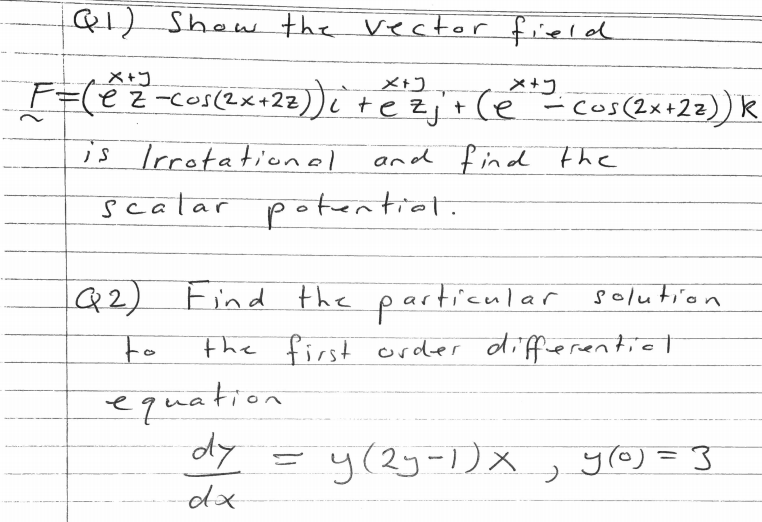 Q1) Show the vector field
F=(e^{x+y}z-cos(2x+2z))i+e^{x+y}zj+(e^{x+y}-cos(2x+2z))k
is Irrotational and find the
scalar potential.
Q2) Find the particular solution
to the first order differential
equation
dy/dx = y(2y-1)x, y(0)=3